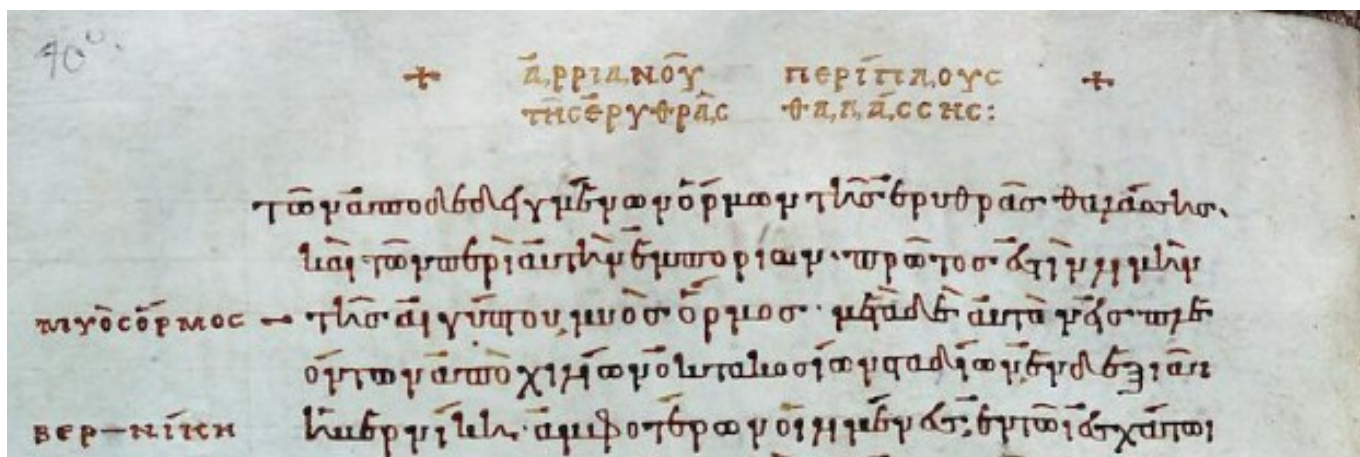 40v.
+ ἀρριανοῦ περίπλους +
τῆς ἐρυθρᾶς θαλάσσης:
τῶν ἀποδεδειγμένων ὅρμων τῆς ἐρυθρᾶς θαλάσσης.
καὶ τῶν περὶ αὐτὴν ἐμποριῶν· πρῶτος ἐστὶν λιμὴν
μυὸς ὅρμος τῆς αἰγύπτου μυὸς ὅρμος· μετὰ δὲ αὐτὸν εἰσπλε
όντων ἀπὸ χιλίων ὀκτακοσίων σταδίων ἐν δεξιᾶι
βερνίκη ἡ βερνίκη· ἀμφοτέρων οἱ λιμένες· ἐν τῶι ἐσχάτωι